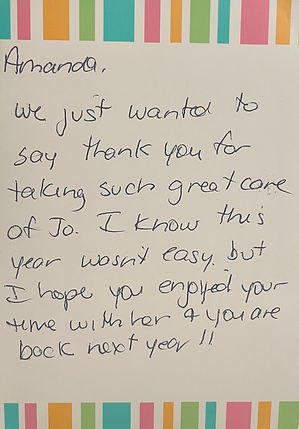 Amanda,
We just wanted to
say thank you for
taking such great care
of Jo. I know this
year wasn't easy, but
I hope you enjoyed your
time with her + you are
back next year !!